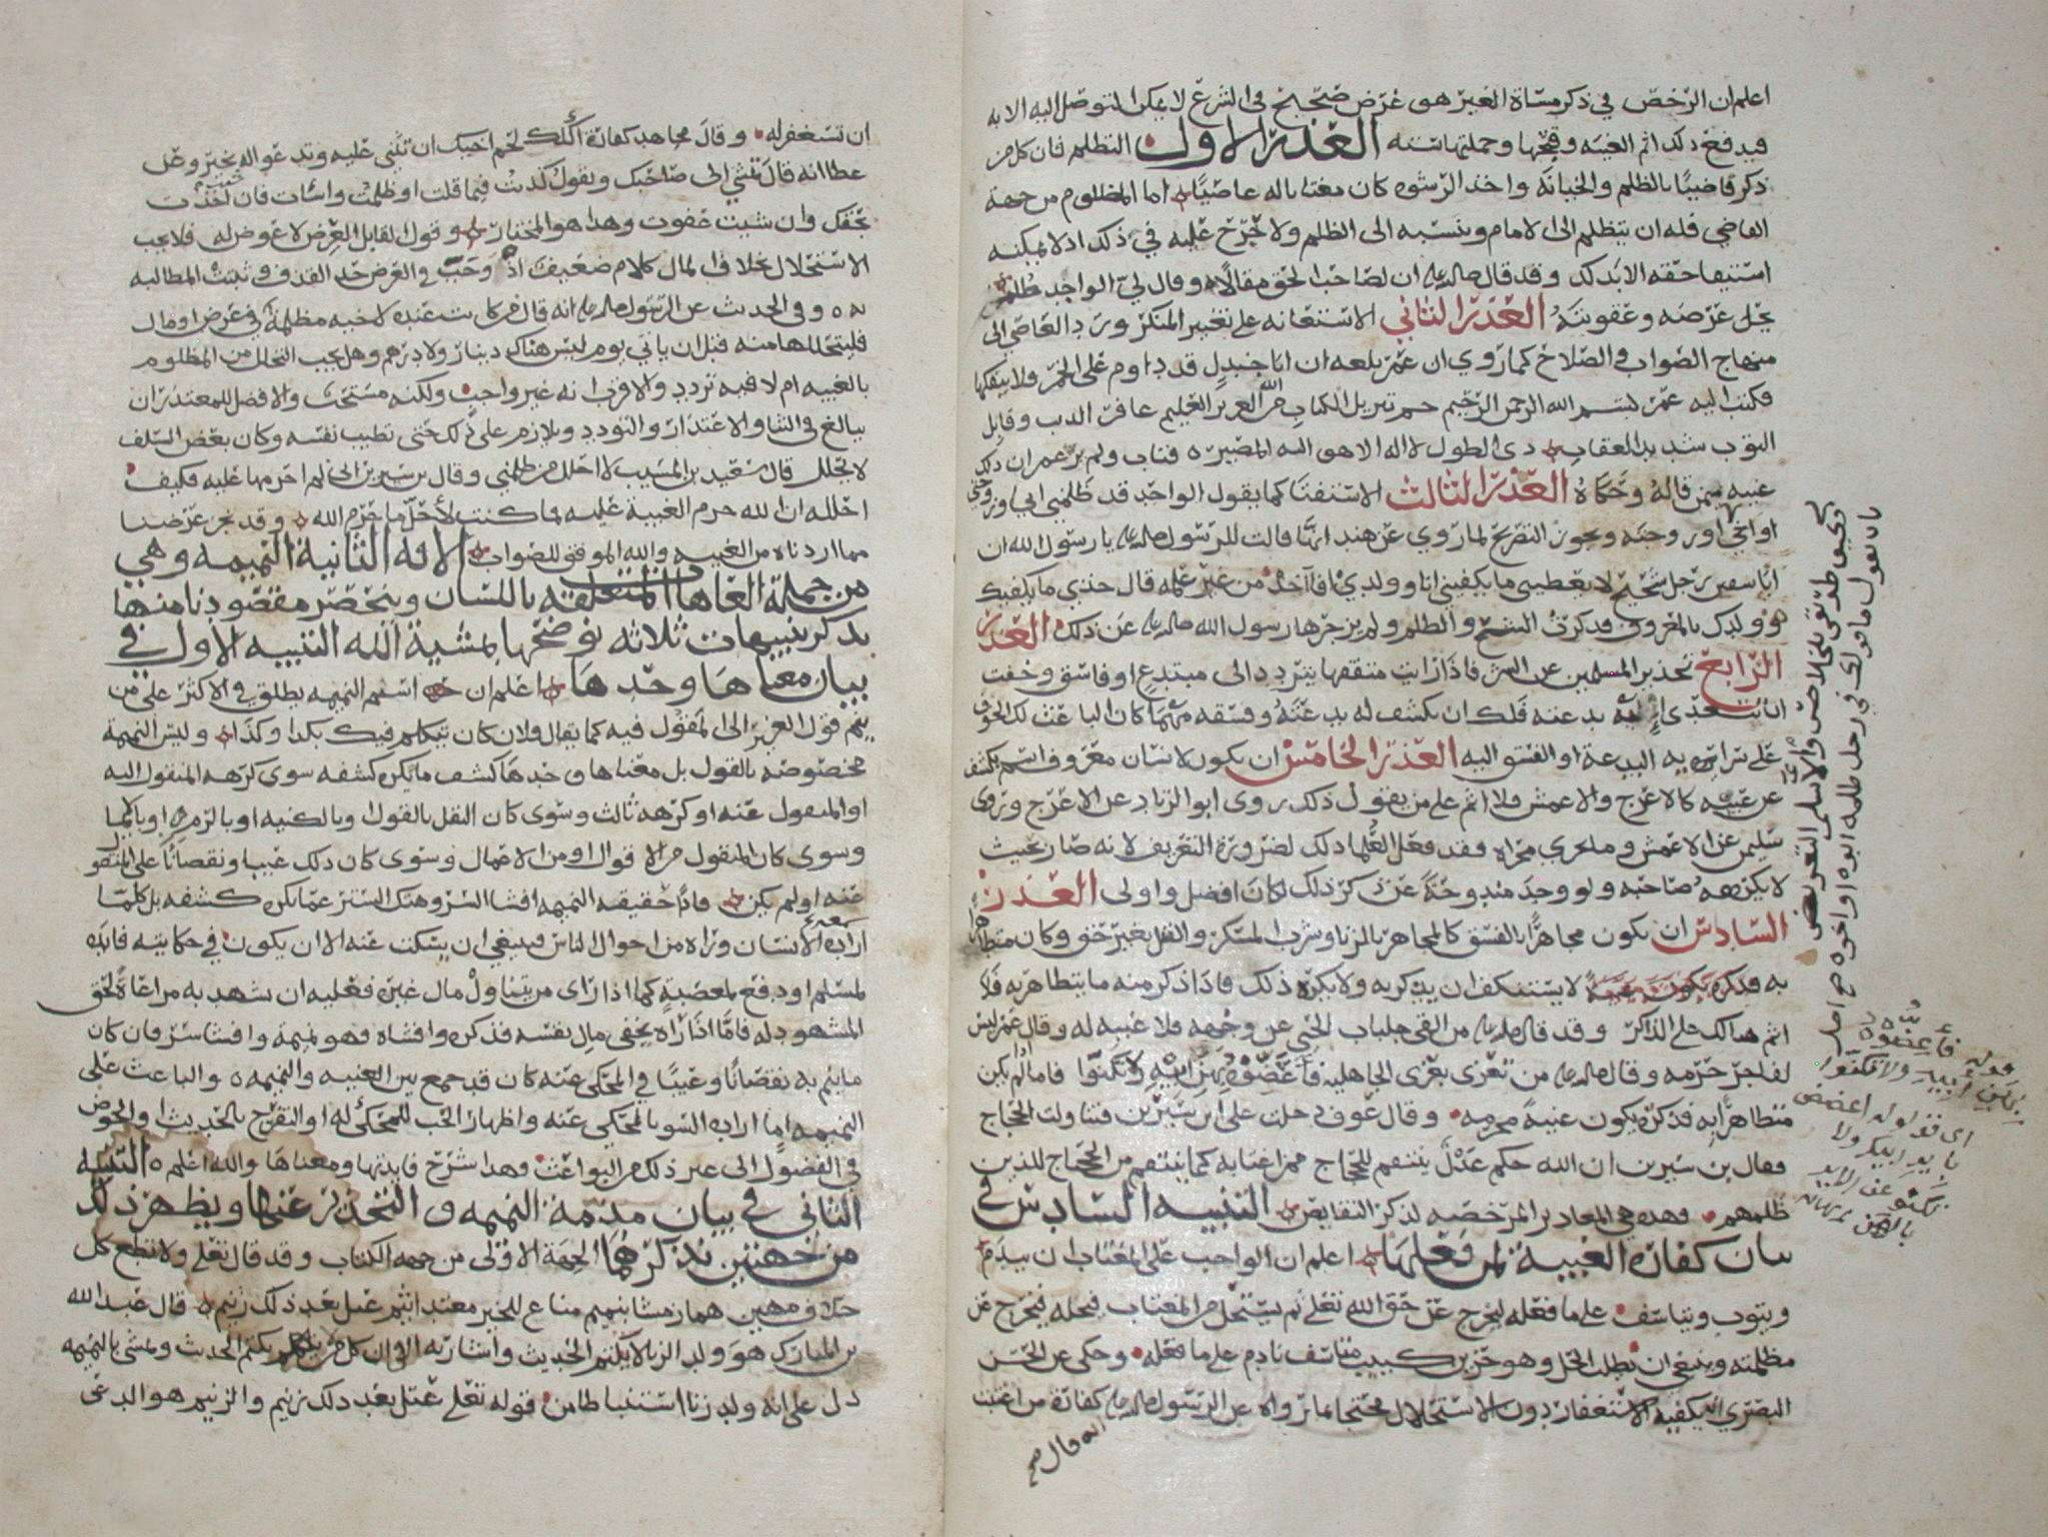 اعلم ان الرخص في ذكر مساة الغير هو غرض صحيح في الشرع لا يمكن التوصل اليه الا به
فيدفع ذلك اثم الغيبه وقبحها وجملتها سته العذر الاول التظلم فان كل من
ذكر قاضيًا بالظلم والخيانه واخذ الرشوه كان مغتابا له عاصيًا اما المظلوم من جهة
القاضي فله ان يتظلم الى الامام وينسبه الى الظلم ولا حرج عليه في ذلك اذ لا يمكنه
استيفا حقه الا بذلك وقد قال صلى ان لصاحب الحق مقالا وقال لي الواجد ظلم
يحل عرضه وعقوبته العذر الثاني الاستعانه على تغيير المنكر ورد العاصي الى
منهاج الصواب والصلاح كما روي ان عمر بلغه ان ابا جندل قد داوم على الخمر ولا ينفك
فكتب اليه عمر بسم الله الرحمن الرحيم حم تنزيل الكتاب من الله العزيز العليم غافر الذنب وقابل
التوب شديد العقاب ذي الطول لا اله الا هو اليه المصير فتاب ولم ير عمر ان ذلك
غيبه ممن قاله وحكاه العذر الثالث الاستفتا كما يقول الواحد قد ظلمني ابي وزوجتي
او اخي او زوجته ويجوز التصريح لما روي عن هند انها قالت للرسول صلى يا رسول الله ان
ابا سفين رجل شحيح لا يعطيني ما يكفيني انا وولدي افاآخذ من غير علمه قال خذي ما يكفيك
وولدك بالمعروف فذكرت الشح والظلم ولم يزجرها رسول الله صلى عن ذلك العذر
الرابع تحذير المسلمين عن الشر فاذا رايت متفقها يتردد الى مبتدع او فاسق وخفت
ان تتعدى اليه بدعته فلك ان تكشف له بدعته وفسقه مهما كان الباعث لك الخوف
على سراية البدعة او الفسق اليه العذر الخامس ان يكون الانسان معروف باسم يكشف
عن عيبه كالاعرج والاعمش فلا اثم على من يقول ذلك روى ابو الزناد عن الاعرج وروى
سليمن عن الاعمش وما يجري مجراه وقد فعل العلما ذلك لضرورة التعريف لانه صار بحيث
لا يكرهه صاحبه ولو وجد مندوحة عن كر ذلك لكان افضل واولى العذر
السادس ان يكون مجاهرًا بالفسق كالمجاهر بالزنا وشرب المسكر والقتل بغير حق وكان متظاهرا
به لا يستنكف ان يذكر به ولا يكره ذلك فاذا ذكر منه ما يتظاهر به فلا
اثم هنالك على الذاكر وقد قال صلى من القى جلباب الحيى عن وجهه فلا غيبه له وقال عمر ليس
لفاجر حرمه وقال صلى من تعزى بعزى الجاهليه فأعضوه بهن ابيه ولا تكنوا فاما لم يكن
متظاهرًا به فذكره يكون غيبة محرمه وقال عوف دخلت على ابن سيرين فتناولت الحجاج
فقال بن سيرين ان الله حكم عدل ينتقم للحجاج ممن اغتابه كما ينتقم من الحجاج للذين
ظلمهم فهذه هي المعاذير المرخصه لذكر النقايص التنبيه السادس في
بيان كفارة الغيبة لمن فعلها اعلم ان الواجب على المغتاب ان يندم
ويتوب ويتاسف على ما فعله ليخرج عن حق الله تعلى ثم يستحل من المغتاب فيحله فيخرج عن
مظلمته وينبغي ان يطلب الحل وهو حزين كييب متاسف نادم على ما فعله وحكى عن الحسن
البصري انه يكفيه الاستغفار دون الاستحلال محتجا بما رواه عن الرسول صلى كفارة من اغتبت
انه قال صح
بان تقول ما قولك في رجل ظلمه ابوه او اخوه صح اصل
قوله فأعضوه
بهن ابيه ولا تكنوا
اي قولوا له اعضض
باير ابيك ولا
تكنو عن الاير
بالهن
ان تستغفر له وقال مجاهد كفارة اكلك لحم اخيك ان تثني عليه وتدعو له بخير وعن
عطا انه قال تمشي الى صاحبك وتقول كذبت فيما قلت او ظلمت واسات فان اخذت
بحقك وان شيت عفوت وهذا هو المختار وقول القايل العرض لا عوض له فلا يجب
الاستحلال بخلاف المال كلام ضعيف اذ وجب في العرض حد القذف وثبتت المطالبه
به وفي الحديث عن الرسول صلى انه قال من كانت عنده لاخيه مظلمة في عرض او مال
فليتحللها منه قبل ان ياتي يوم ليس هناك دينار ولا درهم وهل يجب التحلل من المظلوم
بالغيبه ام لا فيه تردد والاقرب انه غير واجب ولكنه مستحب والافضل للمعتذر ان
يبالغ في الثنا والاعتذار والتودد ويلازم على ذلك حتى تطيب نفسه وكان بعض السلف
لا يحلل قال سعيد بن المسيب لا احلل من ظلمني وقال بن سيرين اني لم احرمها عليه فكيف
احللها ان الله حرم الغيبة عليه فما كنت لأحل ما حرم الله وقد نجز غرضنا
مما اردناه من الغيبه والله الموفق للصواب الافه الثانية النميمه وهي
من جملة العاهات المتعلقه باللسان وينحصر مقصودنا منها
بذكر تنبيهات ثلاثه نوضحها بمشية الله التنبيه الاول في
بيان معناها وحدها اعلم ان اسم النميمه يطلق في الاكثر على من
ينم قول الغير الى المقول فيه كما يقال فلان كان يتكلم فيك بكذا وكذا وليس النميمة
مخصوصه بالقول بل معناها وحدها كشف ما يكره كشفه سوى كرهه المنقول اليه
او المنقول عنه او كرهه ثالث وسوى كان النقل بالقول او بالكتبه او بالرمز او بالايما
وسوى كان المنقول من الاقوال او من الاعمال وسوى كان ذلك عيبا ونقصانًا على المنقول
عنه او لم يكن فاذًا حقيقه النميمه افشا السر وهتك الستر عما يكره كشفه بل كلما
اراده الانسان وراه من احوال الناس فينبغي ان يسكت عنه الا ان يكون في حكايته فايده
لمسلم او دفع لمعصية كما اذا راى من يتناول مال غيره فعليه ان يشهد به مراعاة لحق
المشهود له فامًا اذا رآه يخفي مال نفسه فذكره وافشاه فهو نميمة وافشا سر فان كان
ما ينم به نقصانًا وعيبًا في المحكي عنه كان قد جمع بين الغيبه والنميمه والباعث على
النميمه اما ارادة السو بالمحكي عنه واظهار الحب للمحكي له او التفرح بالحديث او الخوض
في الفضول الى غير ذلك من البواعث وهذا شرح فايدتها ومعناها والله اعلم التنبيه
الثاني في بيان مذمة النميمه والتحذير عنها ويظهر ذلك
من جهتين نذكرهما الجهة الاولى من جهه الكتاب وقد قال تعلى ولا تطع كل
حلاف مهين هماز مشا بنميم مناع للخير معتد اثيم عتل بعد ذلك زنيم قال عبد الله
بن المبارك هو ولد الزنا لا يكتم الحديث واشار به الى ان كل من يكتم الحديث ومشى بالنميمه
دل على انه ولد زنا استنباطا من قوله تعلى عتل بعد ذلك زنيم والزنيم هو الدعي